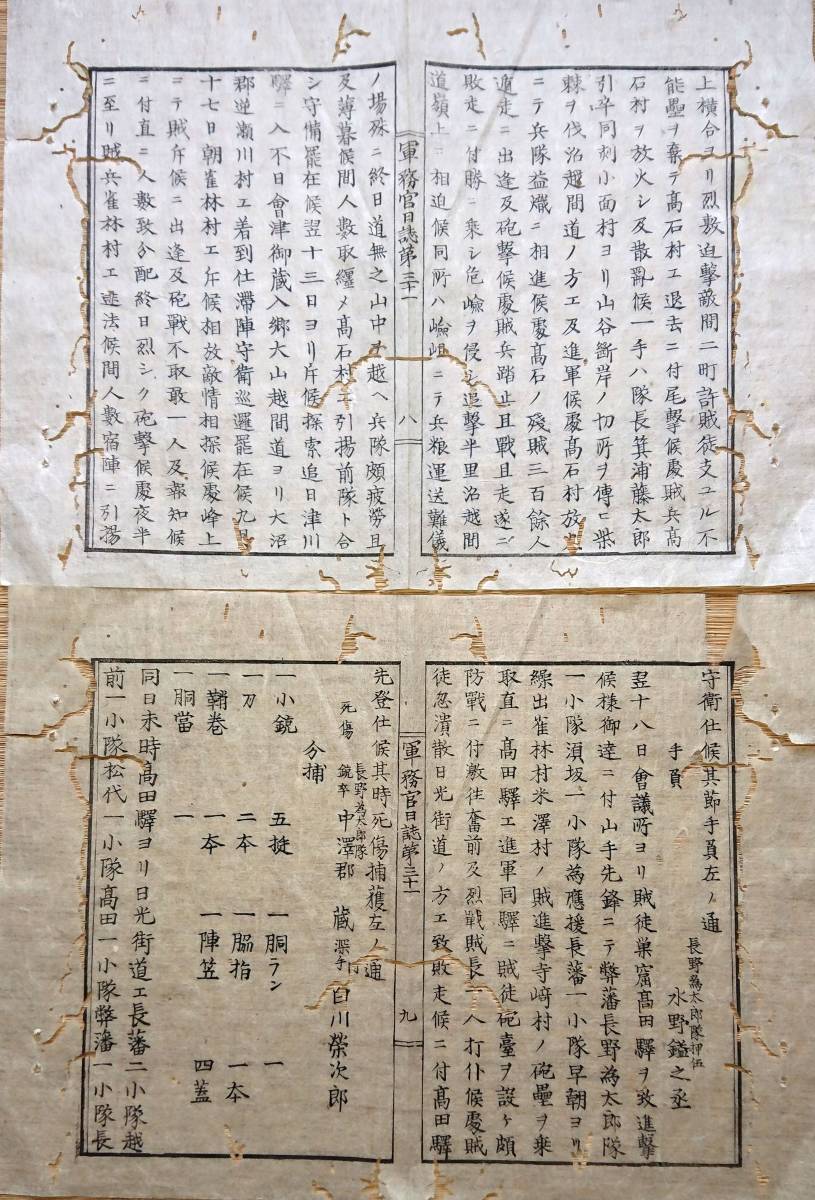 上横合ヨリ烈敷迫撃敵間二町許賊徒支ユル不
能壘ヲ棄テ髙石村エ退去ニ付尾撃候處賊兵髙
石村ヲ放火シ及散亂候一手ハ隊長箕浦藤太郎
引卒同刻小面村ヨリ山谷斷岸ノ切所ヲ傳ヒ柴
棘ヲ伐沿越間道ノ方エ及進軍候處髙石村放火
ニテ兵隊益熾ニ相進候處髙石ノ殘賊三百餘人
遁走ニ出逢及砲撃候處賊兵踏止且戰且走遂ニ
敗走ニ付勝ニ乗シ危嶮ヲ侵シ追撃半里沿越間
道嶺上ニ相迫候同所ハ嶮岨ニテ兵粮運送難儀
軍務官日誌第三十一
八
ノ場殊ニ終日道無之山中ヲ越ヘ兵隊頗疲勞且
及薄暮候間人數取纏メ髙石村エ引揚前隊ト合
シ守備罷在候翌十三日ヨリ斥候探索追日津川
驛ニ入不日會津御蔵入郷大山越間道ヨリ大沼
郡逆瀬川村エ着到仕滞陣守衛巡邏罷在候九月
十七日朝雀林村エ斥候相放敵情相探候處峰上
ニテ賊斥候ニ出逢及砲戰不取敢一人及報知候
ニ付直ニ人數致分配終日烈シク砲撃候處夜半
ニ至リ賊兵雀林村エ迯去候間人數宿陣ニ引揚
守衛仕候其節手負左ノ通
長野為太郎隊押伍
手負　水野鎰之丞
翌十八日會議所ヨリ賊徒巣窟髙田驛ヲ致進撃
候様御達ニ付山手先鋒ニテ弊藩長野為太郎隊
一小隊須坂一小隊為應援長藩一小隊早朝ヨリ
繰出雀林村米澤村ノ賊進撃寺﨑村ノ砲壘ヲ乗
取直ニ髙田驛エ進軍同驛ニ賊徒砲臺ヲ設ケ頗
防戰ニ付激徃奮前及烈戰賊長一人打仆候處賊
徒忽潰散日光街道ノ方エ致敗走候ニ付髙田驛
軍務官日誌第三十一
九
先登仕候其時死傷捕獲左ノ通
死傷　長野為太郎隊銃卒　中澤郡蔵　深手　同　白川榮次郎
分捕
一小銃　五挺　一胴ラン　一
一刀　二本　一脇指　一本
一鞘巻　一本　一陣笠　四蓋
一胴當　一
同日未時髙田驛ヨリ日光街道エ長藩二小隊越
前一小隊松代一小隊髙田一小隊弊藩一小隊長